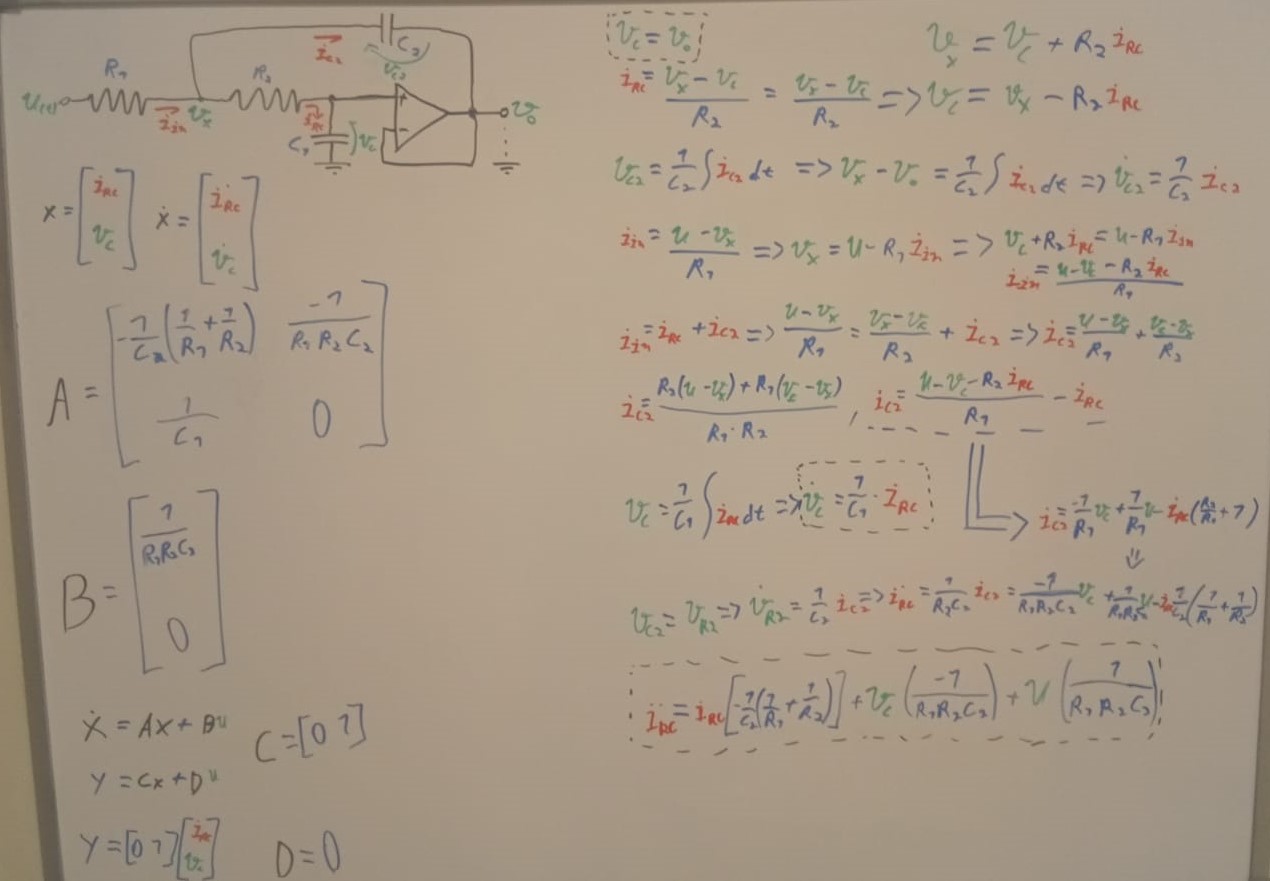 R₁
R₂
C₂
i_C2
v_C2
u(t)
i_in
v_x
i_RC
C₁
v_c
+
-
v_o
x = [i_RC v_c] ẋ = [i̇_RC v̇_c]
A = [-1/C₂ (1/R₁ + 1/R₂) -1/(R₁R₂C₂)
1/C₁ 0]
B = [1/(R₁R₂C₂)
0]
ẋ = Ax + Bu
C = [0 1]
Y = Cx + Du
Y = [0 1] [i_RC v_c]
D = 0
v_c = v_o
v_x = v_c + R₂ i_RC
i_RC = (v_x - v_c)/R₂ = (v_x - v_c)/R₂ => v_c = v_x - R₂ i_RC
v_C2 = 1/C₂ ∫ i_C2 dt => v_x - v_o = 1/C₂ ∫ i_C2 dt => v̇_C2 = 1/C₂ i_C2
i_in = (u - v_x)/R₁ => v_x = u - R₁ i_in => v_c + R₂ i_RC = u - R₁ i_in
i_in = (u - v_c - R₂ i_RC)/R₁
i_in = i_RC + i_C2 => (u - v_x)/R₁ = (v_x - v_c)/R₂ + i_C2 => i_C2 = (u - v_x)/R₁ + (v_c - v_x)/R₂
i_C2 = (R₂(u - v_x) + R₁(v_c - v_x))/(R₁·R₂) , i_C2 = (u - v_c - R₂ i_RC)/R₁ - i_RC
v_c = 1/C₁ ∫ i_RC dt => v̇_c = 1/C₁ · i_RC
i_C2 = -1/R₁ v_c + 1/R₁ u - i_RC (R₂/R₁ + 1)
⇓
v_C2 = v_R2 => v̇_R2 = 1/C₂ i_C2 => i̇_RC = 1/(R₂C₂) i_C2 = -1/(R₁R₂C₂) v_c + 1/(R₁R₂C₂) u - i_RC 1/C₂ (1/R₁ + 1/R₂)
i̇_RC = i_RC [-1/C₂ (1/R₁ + 1/R₂)] + v_c (-1/(R₁R₂C₂)) + u (1/(R₁R₂C₂))